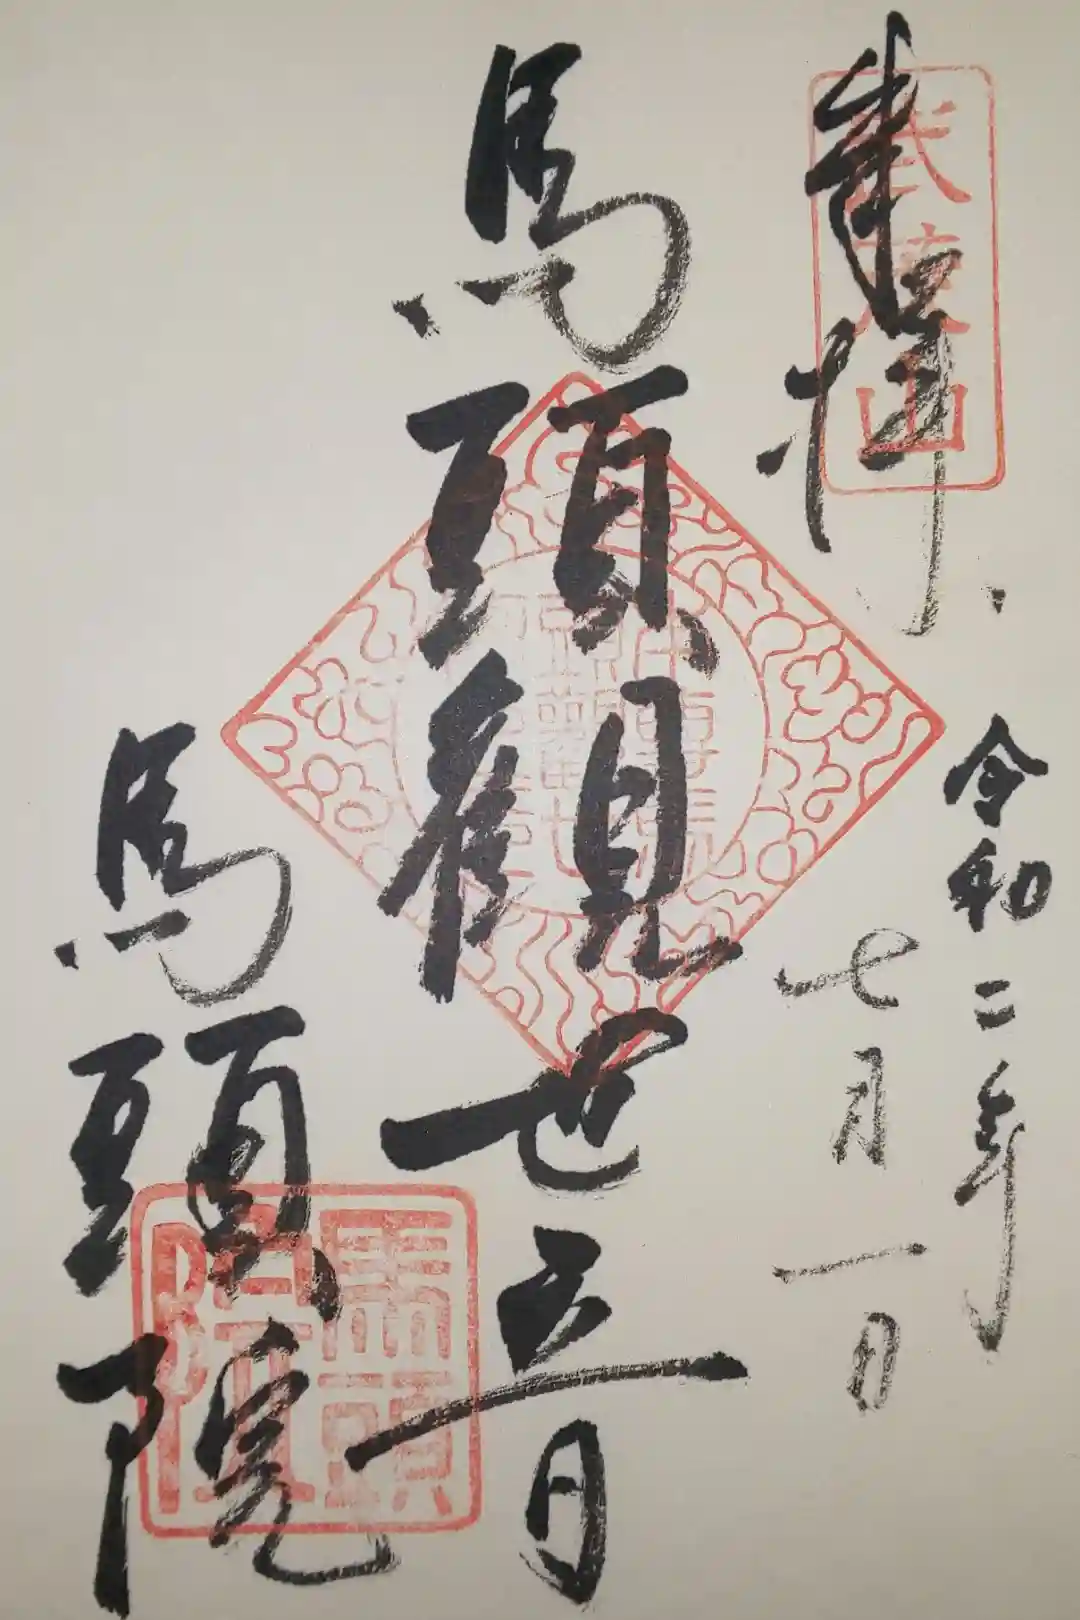 奉拝
武茂山
令和二年
七月一日
馬頭觀世音
馬頭院
馬頭院